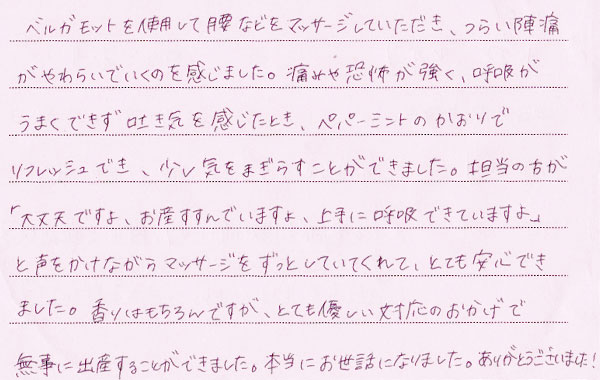 ベルガモットを使用して腰などをマッサージしていただき、つらい陣痛
がやわらいでいくのを感じました。痛みや恐怖が強く、呼吸が
うまくできず吐き気を感じたとき、ペパーミントのかおりで
リフレッシュでき、少し気をまぎらすことができました。担当の方が
「大丈夫ですよ、お産すすんでいますよ、上手に呼吸できていますよ」
と声をかけながらマッサージをずっとしていてくれて、とても安心でき
ました。香りはもちろんですが、とても優しい対応のおかげで
無事に出産することができました。本当にお世話になりました。ありがとうございました!